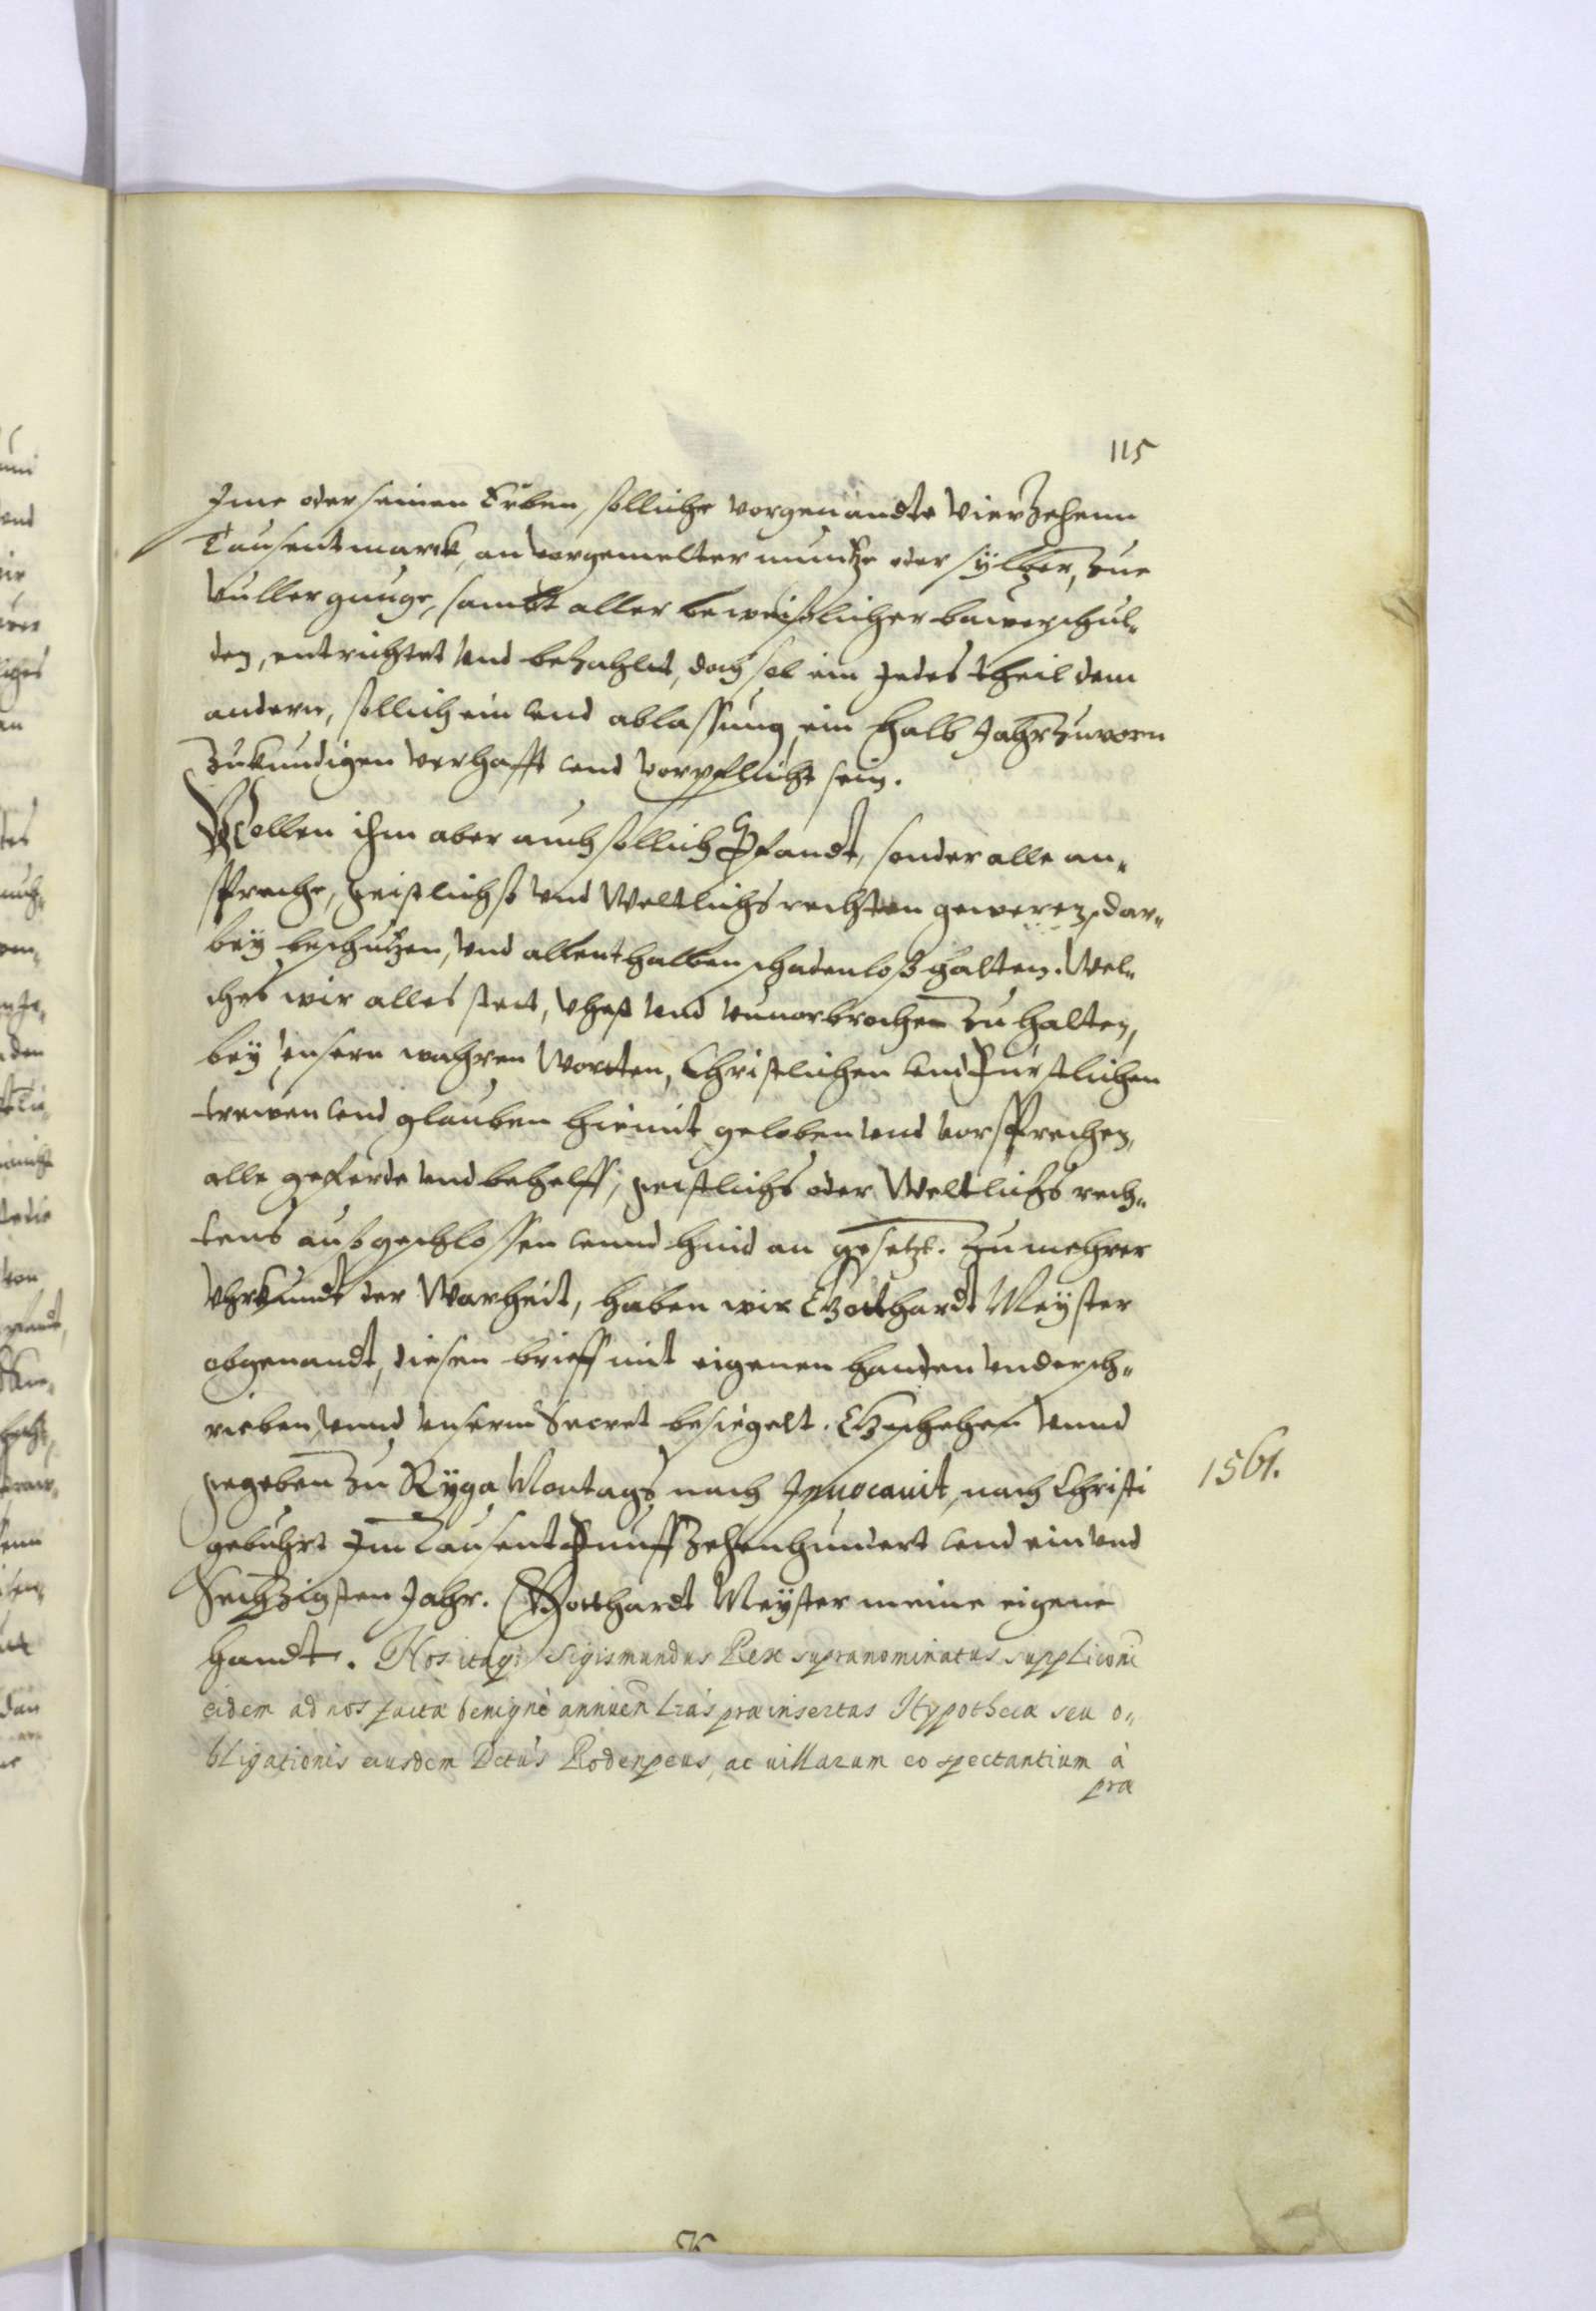 115
Ime oder seinen Erben, solliche vorgenandte vierzehenn
Tausent marck, an vorgemelter muntze oder sylber, zue
vuller gnuge, sambt aller beweißlicher bawerschul„
den, entrichtet vnd bezahlet, doch sol ein jedes theil dem
andern, sollich ein vnd ablassung, ein halb Jahr zuvorn
zukundigen verhafft vnd vorpflicht sein.
Wollen ihm aber auch sollich Pfandt, sonder alle an„
sprache, geistlichs vnd Weltlichs rechten geweren, dar„
bey beschutzen, vnd allenthalben schadenloß halten. Wel„
ches wir alles stett, vhest vnd vnuorbrochen zu halten,
bey vnsern wahren Worten, Christlichen vnd Furstlichen
trewen vnd glauben hiemit geloben vnd vorsprechen,
alle geferde vnd behelff, geistlichs oder Weltlichs rech„
tens außgeschlossen vnnd hind an gesetzt. Zu mehrer
Vhrkundt der Warheit, haben wir Gotthardt Meyster
obgenandt, diesen brieff mit eigenen handen vndersch„
rieben, vnnd vnserm Secret besiegelt. Geschehen vnnd
gegeben zu Ryga Montags nach Inuocauit, nach Christi
1561.
gebuhrt Im Tausent Funffzehenhundert vnd ein vnd
Sechzigsten Jahr. Gotthardt Meyster meine eigene
handt. Nos itaq; Sigismundus Rex supranominatus suppliconi
eidem ad nos factæ benignè annuen Lrãs præinsertas Hypothecæ seu o„
bligationis eiusdem Dctũs Rodenpeus, ac uillarum eo spectantium à
præ